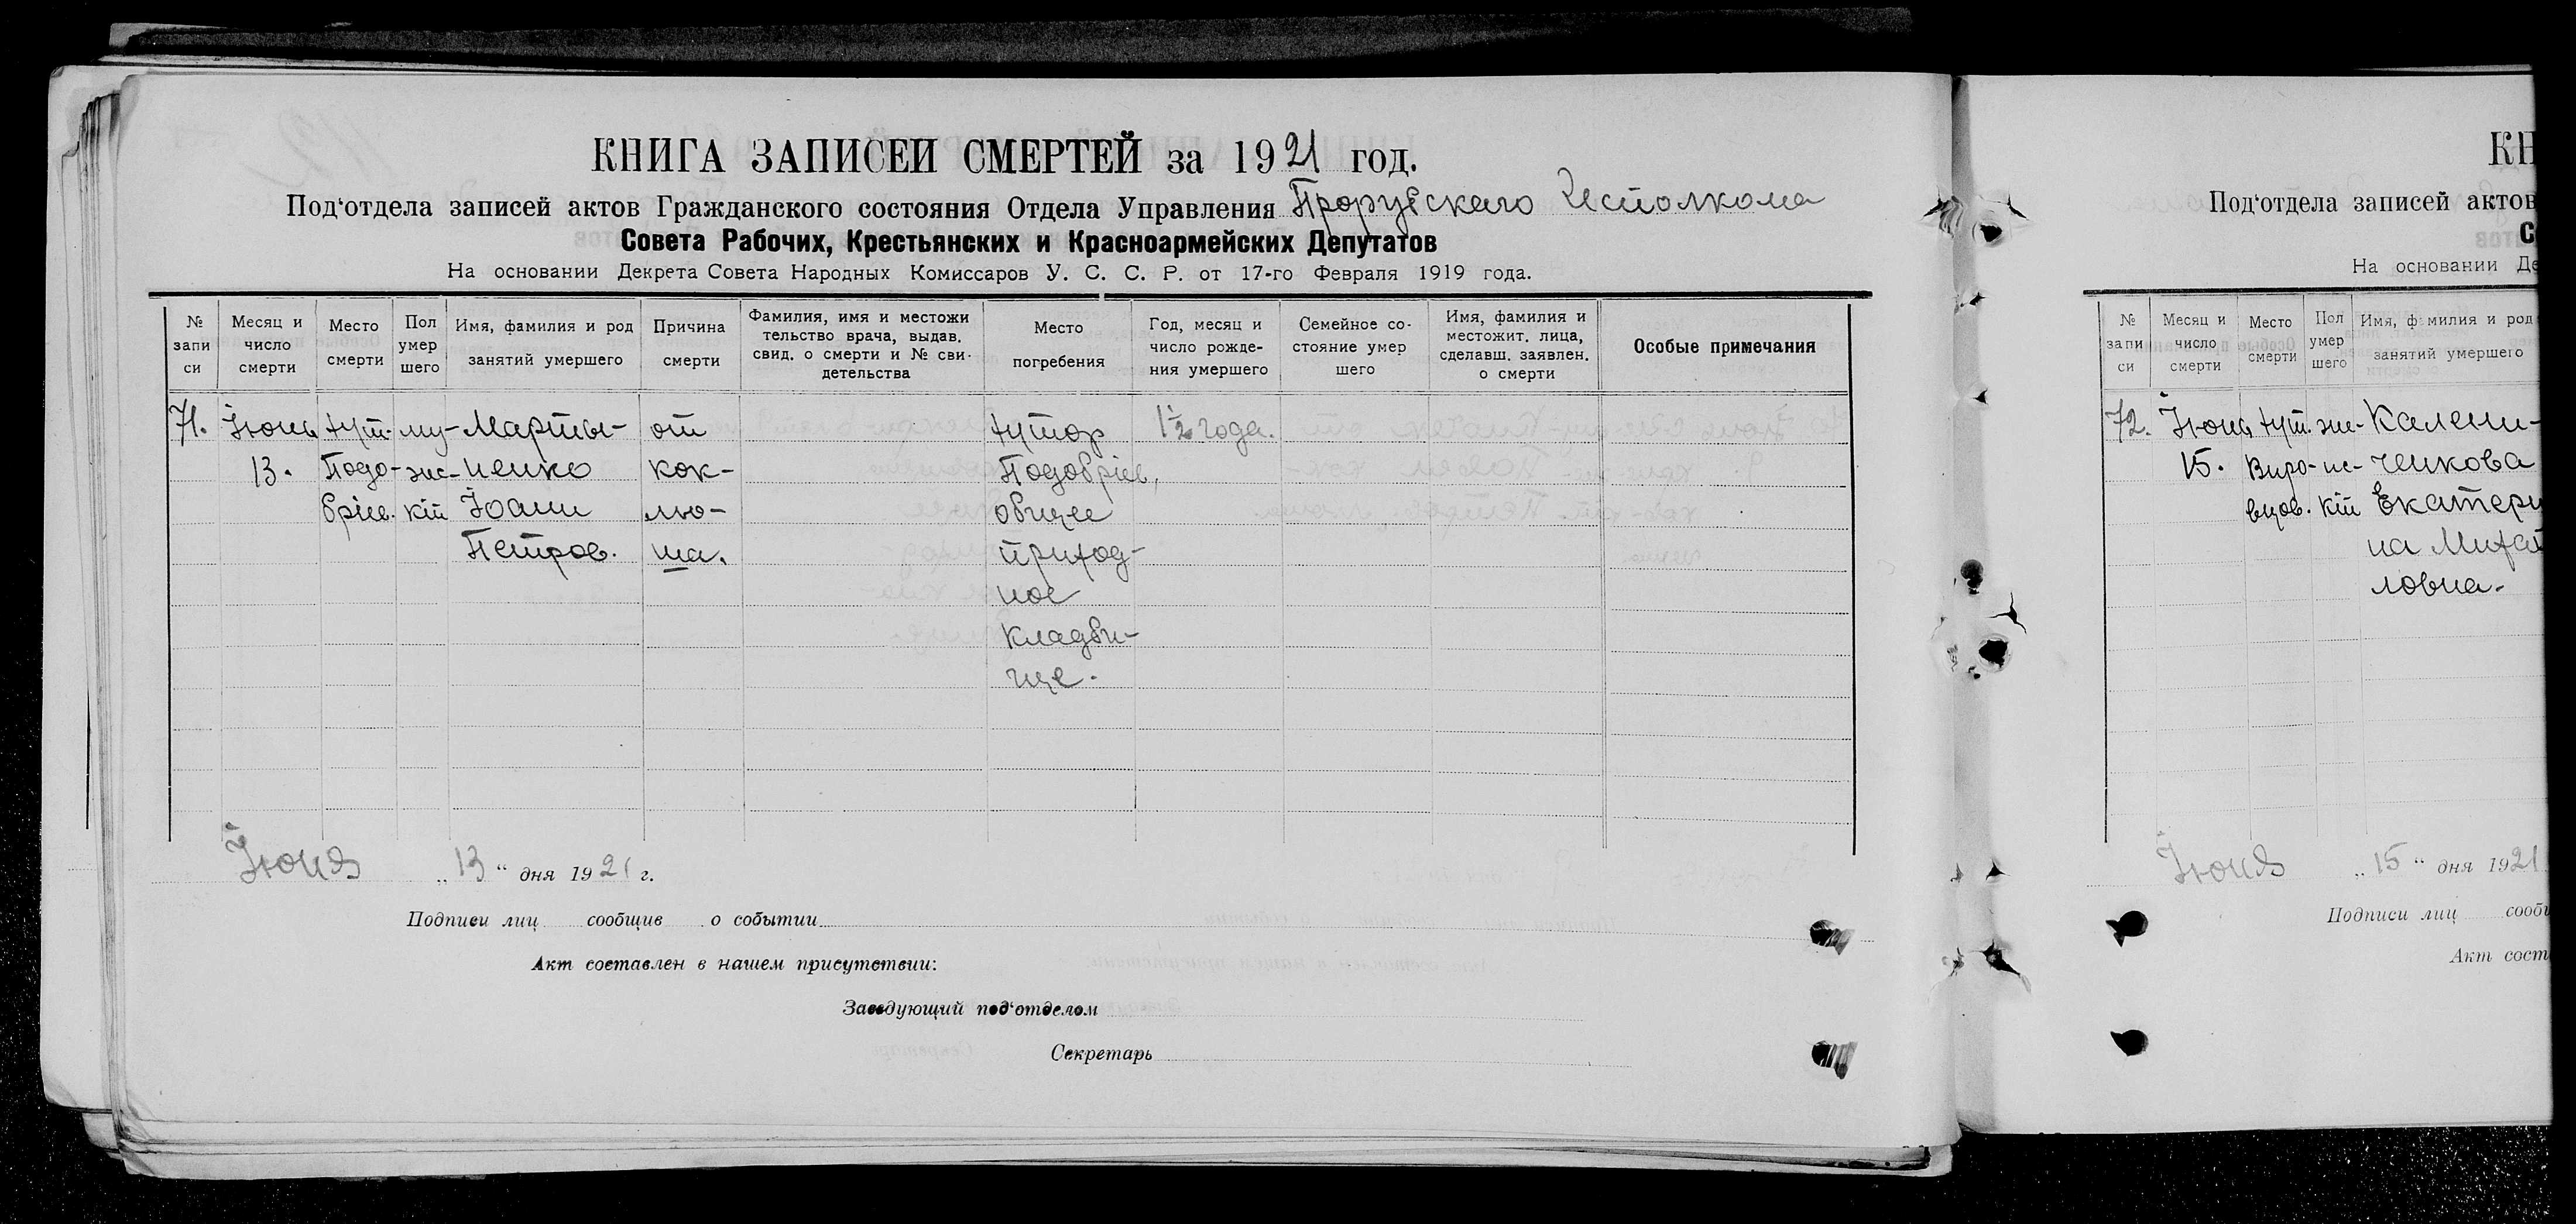 КНИГА ЗАПИСЕЙ СМЕРТЕЙ за 1921 год.
Под‘отдела записей актов Гражданского состояния Отдела Управления Прорубскаго Исполкома
Совета Рабочих, Крестьянских и Красноармейских Депутатов
На основании Декрета Совета Народных Комиссаров У. С. С. Р. от 17-го Февраля 1919 года.
№ запи си
Месяц и число смерти
Место смерти
Пол умер шего
Имя, фамилия и род занятий умершего
Причина смерти
Фамилия, имя и местожи тельство врача, выдав. свид. о смерти и № сви- детельства
Место погребения
Год, месяц и число рожде- ния умершего
Семейное со- стояние умер шего
Имя, фамилия и местожит. лица, сделавш. заявлен. о смерти
Особые примечания
71. Іюнь хут. му- Марты- от хутор 1½ года.
13. Подо- жс- ненко кок- Подобріев,
бріев. кій Іоанн лю- общее
Петров. ша. приход-
ное
кладби-
ще.
Іюня „13“ дня 1921 г.
Подписи лиц сообщив о событии
Акт составлен в нашем присутствии:
Заведующий под‘отделом
Секретарь
КН
Под‘отдела записей актов
С
На основании Де
№ запи си
Месяц и число смерти
Место смерти
Пол умер шего
Имя, фамилия и род занятий умершего
72. Іюнь хут. же- Калени-
15. нс- ченкова
кій Екатери
на Михай
ловна.
Іюня „15“ дня 1921
Подписи лиц сооб
Акт сост